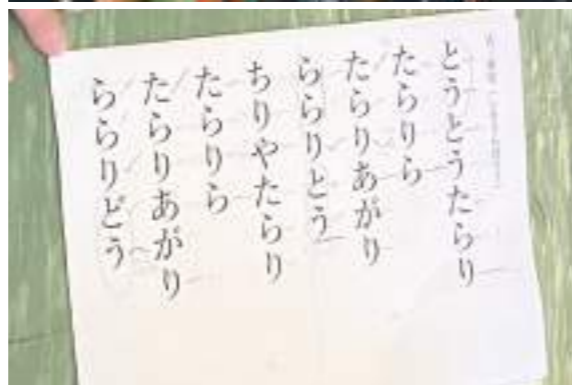 とうとうたらり
たらりら
たらりあがり
ららりとう
ちりやたらり
たらりら
たらりあがり
ららりどう